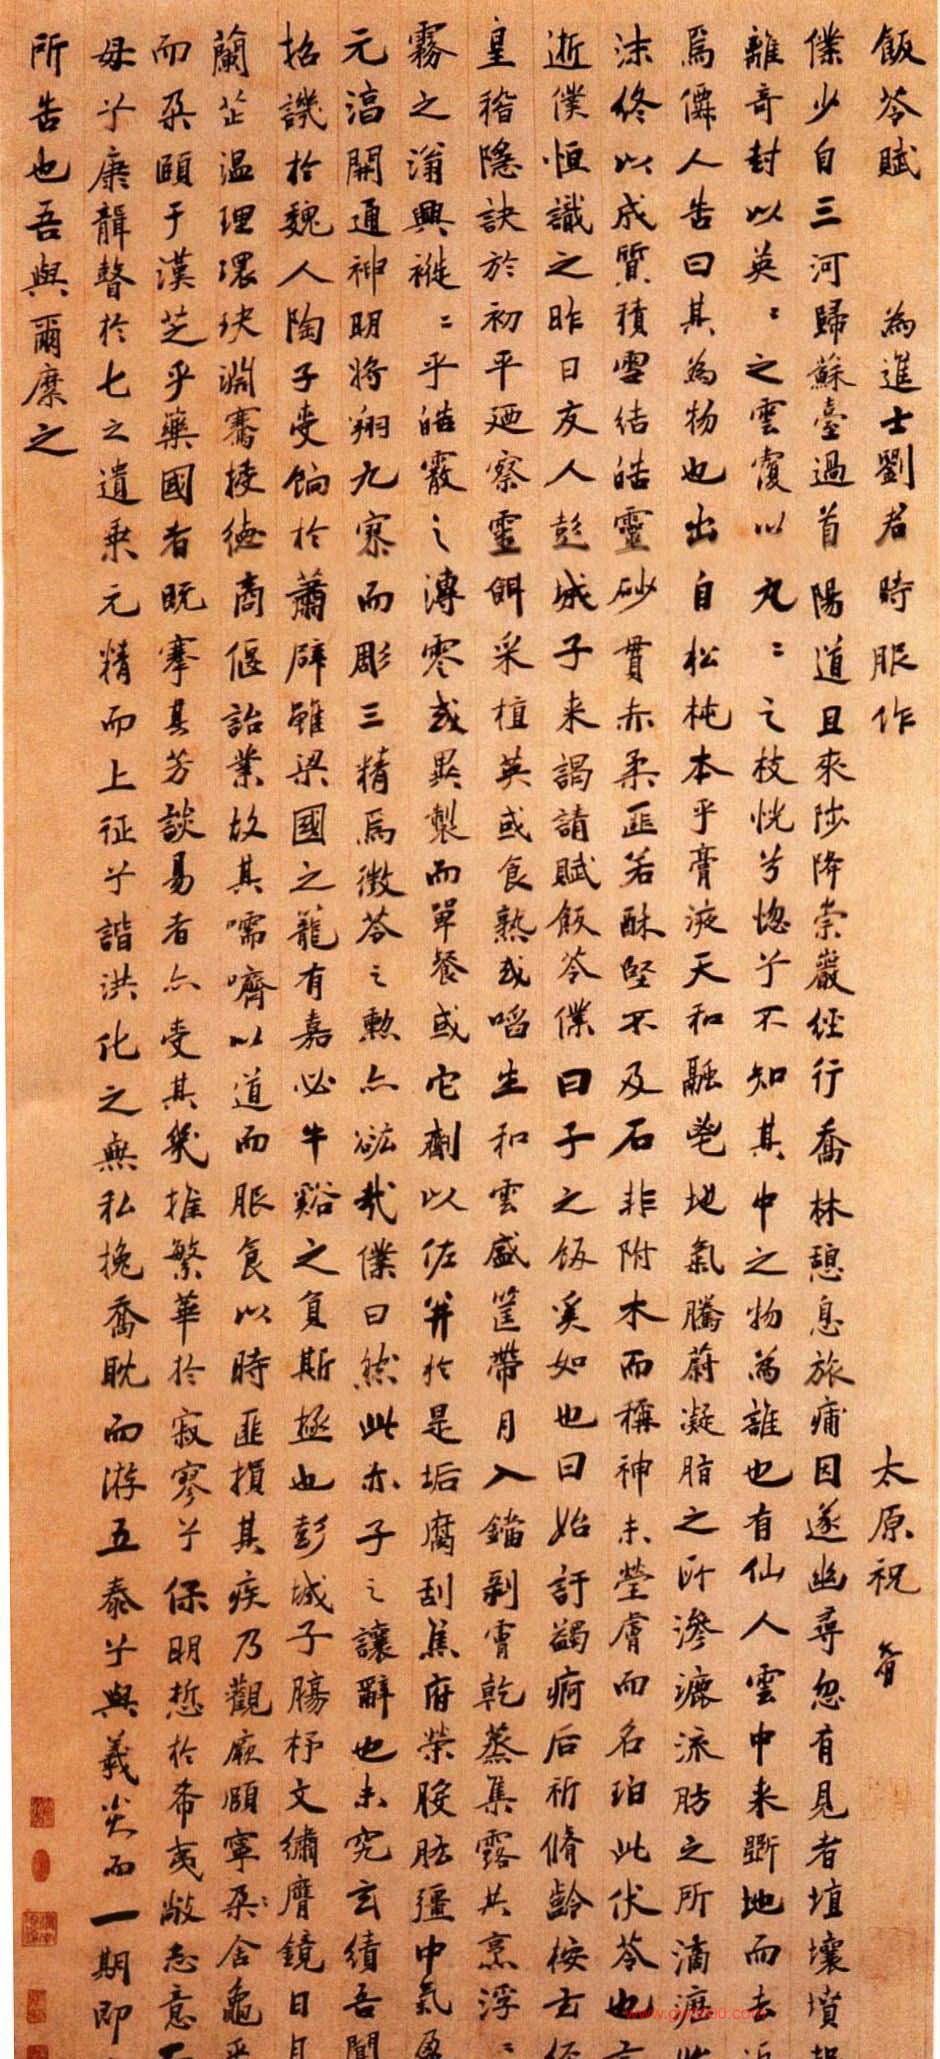 飯苓賦 為進士劉君時服作 太原祝
僕少自三河歸蘇臺過首陽道且來陟降崇巖經行喬林憩息旅痡因遂幽尋忽有見者埴壤墳
離奇封以英〻之雲覆以丸〻之枝恍兮惚兮不知其中之物為誰也有仙人雲中來斲地而去
焉僲人告曰其為物也出自松杶本乎膏液天和融鬯地氣騰蔚凝脂之所滲漉流肪之所滴
沫終以成質積雪結皓靈砂貫赤柔匪若酥堅不及石非附木而稱神未瑩膚而名珀此伏苓也言
逝僕恒識之昨日友人彭城子來謁請賦飯苓僕曰子之飯奚如也曰始訏蠲痾后祈脩齡桉玄
皇稽隱訣於初平廼察靈餌采植英或食熟或啗生和雲盛筐帶月入鐺剥膚乾蒸集露共烹浮〻
霧之滃興褷〻乎皓霰之漙零或異製而單餐或它劑以佐并於是垢腐刮焦府榮腠胠彊中氣
元滈開通神明將翔九寮而彫三精焉微苓之勲亦竑哉僕曰然此亦子之讓辭也未究玄績吾聞
招譏於魏人陶子受餉於蕭辟雖梁國之籠有嘉必牛谿之負斯極也彭城子腸杼文繡膺鏡日月
蘭芷温理瓌玦淵騫接德商偃詒業故其嚅嚌以道而服食以時匪損其疾乃觀厥頤寧朵〻舍龜
而朶頤于漢芝乎藥國者既搴其芳談易者亦受其幾推繁華於寂寥兮保明悊於希夷敞志意
毋兮康韾瞀於七之遺乗元精而上征兮諧洪化之無私挽喬耽而游五泰兮與羲炎而一期即
所告也吾與爾麋之